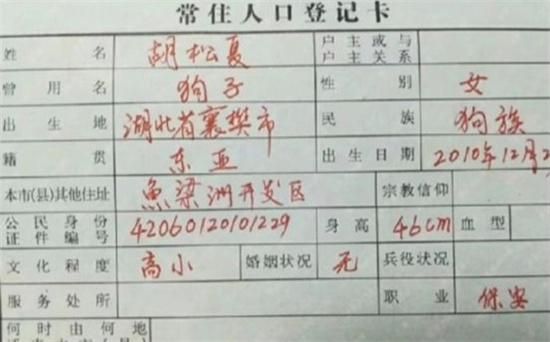 常住人口登记卡
姓名 胡松夏 户主或与户主关系
曾用名 狗子 性别 女
出生地 湖北省襄樊市 民族 狗族
籍贯 东亚 出生日期 2010年12月2
本市(县)其他住址 魚梁洲开发区 宗教信仰
公民身份证件编号 42060120101229 身高 46cm 血型
文化程度 高小 婚姻状况 无 兵役状况
服务处所 职业 保安
何时由何地